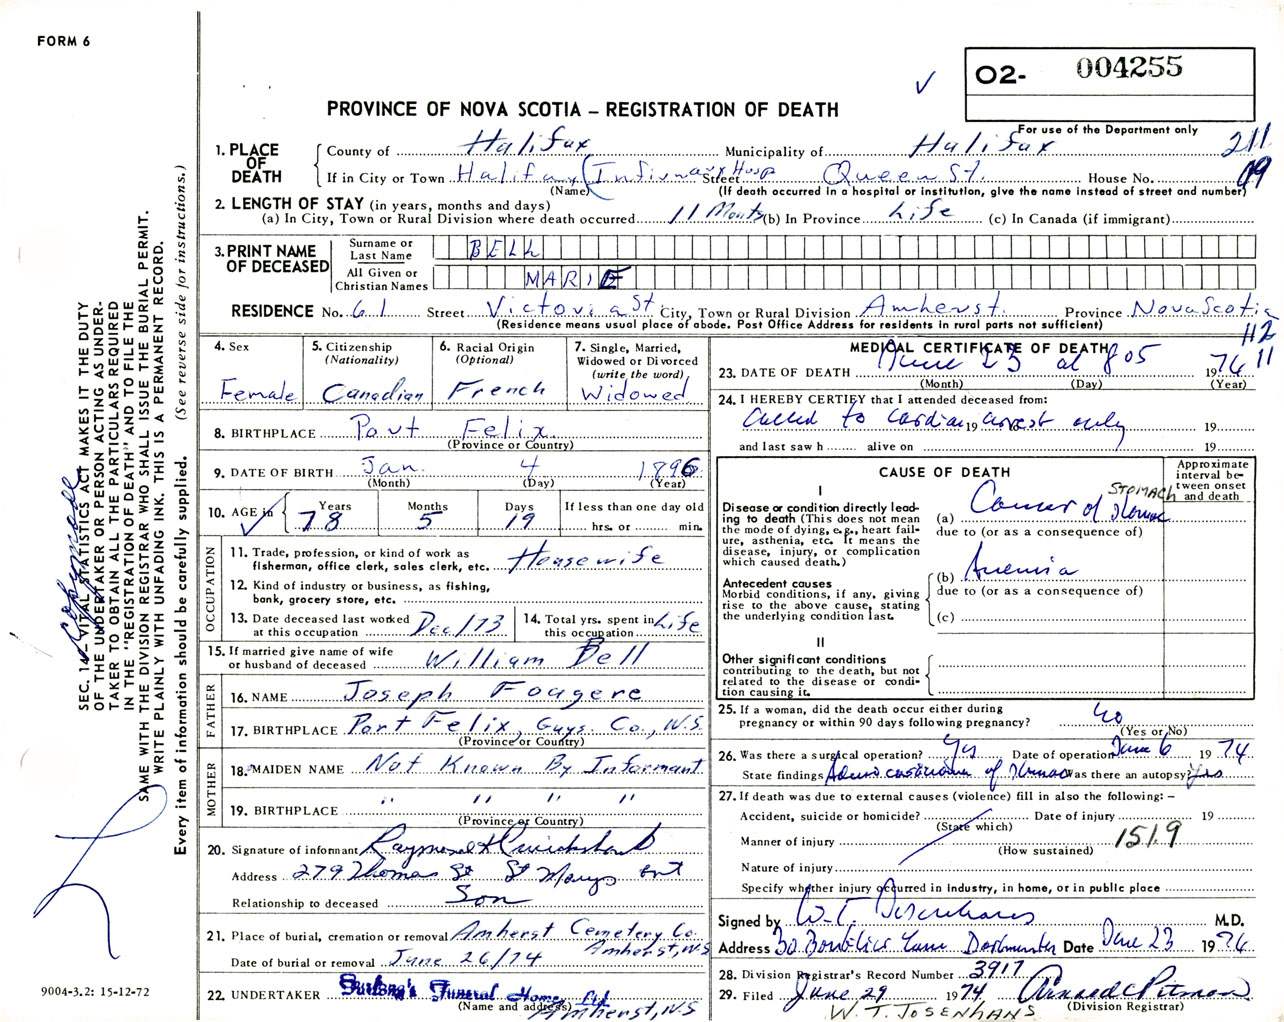 FORM 6
✓
O2- 004255
For use of the Department only
PROVINCE OF NOVA SCOTIA – REGISTRATION OF DEATH
211
19
1. PLACE OF DEATH
County of Halifax Municipality of Halifax
If in City or Town Halifax (Infirmary Hosp Street Queen St. House No.
(Name) (If death occurred in a hospital or institution, give the name instead of street and number)
2. LENGTH OF STAY (in years, months and days)
(a) In City, Town or Rural Division where death occurred 11 Months (b) In Province Life (c) In Canada (if immigrant)
3. PRINT NAME OF DECEASED
Surname or Last Name BELL
All Given or Christian Names MARIE
RESIDENCE No. 61 Street Victoria St. City, Town or Rural Division Amherst. Province Nova Scotia
(Residence means usual place of abode. Post Office Address for residents in rural parts not sufficient)
112
11
4. Sex
Female
5. Citizenship
(Nationality)
Canadian
6. Racial Origin
(Optional)
French
7. Single, Married,
Widowed or Divorced
(write the word)
Widowed
8. BIRTHPLACE Port Felix
(Province or Country)
9. DATE OF BIRTH Jan. 4 1896
(Month) (Day) (Year)
10. AGE in Years 78 Months 5 Days 19
If less than one day old
hrs. or min.
OCCUPATION
11. Trade, profession, or kind of work as
fisherman, office clerk, sales clerk, etc. Housewife
12. Kind of industry or business, as fishing,
bank, grocery store, etc.
13. Date deceased last worked
at this occupation Dec/73
14. Total yrs. spent in
this occupation Life
15. If married give name of wife
or husband of deceased William Bell
FATHER
16. NAME Joseph Fougere
17. BIRTHPLACE Port Felix, Guys. Co., N.S.
(Province or Country)
MOTHER
18. MAIDEN NAME Not Known By Informant
19. BIRTHPLACE " " " "
(Province or Country)
20. Signature of informant Raymond
Address 279 Thomas St St Marys Ont
Relationship to deceased Son
21. Place of burial, cremation or removal Amherst Cemetery Co.
Amherst, N.S
Date of burial or removal June 26/74
22. UNDERTAKER Furlong's Funeral Home Ltd
(Name and address) Amherst, N.S
MEDICAL CERTIFICATE OF DEATH
23. DATE OF DEATH June 23 at 805 1974
(Month) (Day) (Year)
24. I HEREBY CERTIFY that I attended deceased from:
Called to cardiac arrest only 19 19
and last saw h alive on 19
CAUSE OF DEATH
Approximate
interval be-
tween onset
and death
I
Disease or condition directly lead-
ing to death (This does not mean
the mode of dying, e.g., heart fail-
ure, asthenia, etc. It means the
disease, injury, or complication
which caused death.)
STOMACH
(a) Cancer of Stomac
due to (or as a consequence of)
Antecedent causes
Morbid conditions, if any, giving
rise to the above cause, stating
the underlying condition last.
(b) Anemia
due to (or as a consequence of)
(c)
II
Other significant conditions
contributing to the death, but not
related to the disease or condi-
tion causing it.
25. If a woman, did the death occur either during
pregnancy or within 90 days following pregnancy? No
(Yes or No)
26. Was there a surgical operation? Yes Date of operation June 6 1974
State findings Adenocarcinoma of Stomac Was there an autopsy? Yes
27. If death was due to external causes (violence) fill in also the following: –
Accident, suicide or homicide? Date of injury 19
(State which)
Manner of injury
(How sustained)
151.9
Nature of injury
Specify whether injury occurred in industry, in home, or in public place
Signed by W.T. Josenhans M.D.
Address 30 Lane Dartmouth Date June 23 1974
28. Division Registrar's Record Number 3917
29. Filed June 29 1974
(Division Registrar)
W. T. JOSENHANS
SEC. 14—VITAL STATISTICS ACT MAKES IT THE DUTY
OF THE UNDERTAKER OR PERSON ACTING AS UNDER-
TAKER TO OBTAIN ALL THE PARTICULARS REQUIRED
IN THE "REGISTRATION OF DEATH" AND TO FILE THE
SAME WITH THE DIVISION REGISTRAR WHO SHALL ISSUE THE BURIAL PERMIT.
WRITE PLAINLY WITH UNFADING INK. THIS IS A PERMANENT RECORD.
Every item of information should be carefully supplied. (See reverse side for instructions.)
9004-3.2: 15-12-72